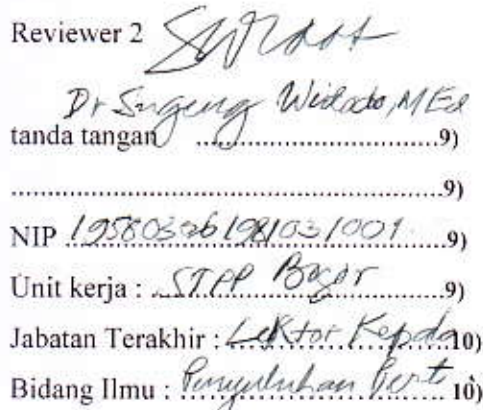 Reviewer 2
Dr Sugeng Widodo, MEd
tanda tangan ..............................9)
................................................................9)
NIP 195803261981031001 ..........9)
Unit kerja : STPP Bogor ..........9)
Jabatan Terakhir : Lektor Kepala 10)
Bidang Ilmu : Penyuluhan Pert 10)